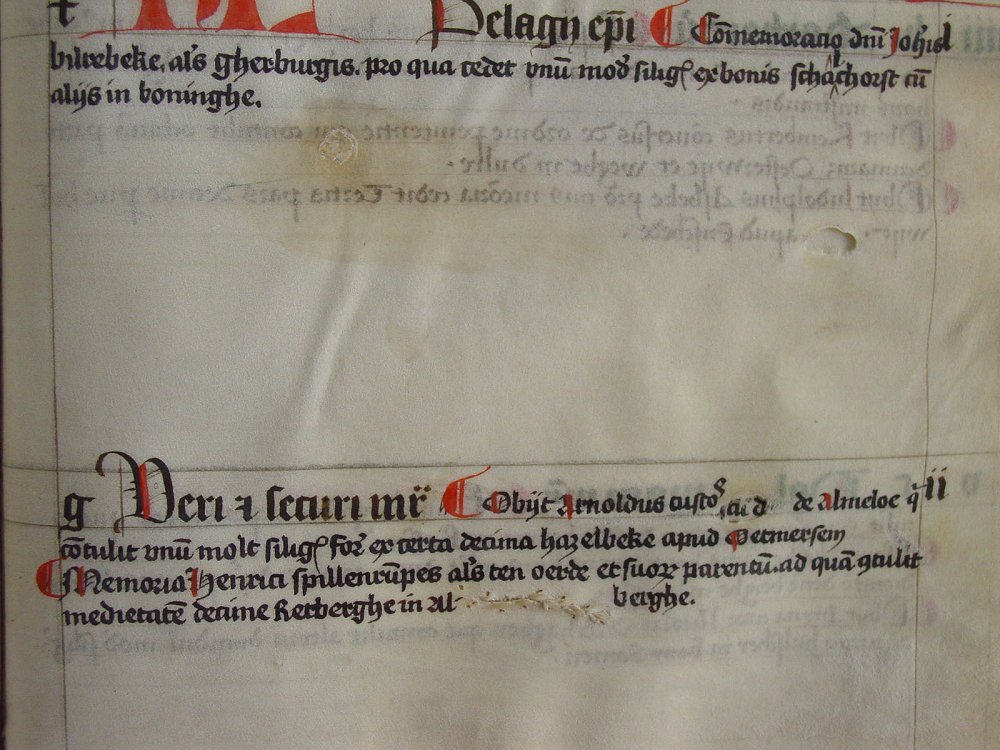 Pelagij ep̄i Cōmemoracio dn̄i Joh̄is
bilrebeke. al̄s gherburgis. pro qua cedet vnū mod̄ siliḡ ex bonis schachorst cū
alijs in boninghe.
g Veri ⁊ securi mr̄ Obijt Arnoldus custos de almeloe q̄ ij
cōtulit vnū molt siliḡ for̄ ex certa decima hazelbeke apud Petmersem
Memoria Henrici spillenrūpes al̄s ten oerde et suoꝝ parentū. ad quā ꝯtulit
medietatē decime Rerberghe in Al berghe.